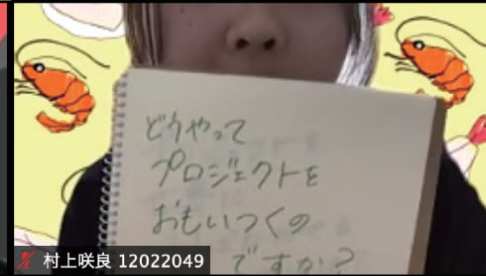 どうやって
プロジェクトを
おもいつくの
ですか?
村上咲良 12022049